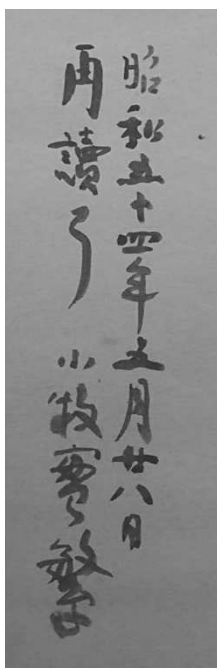 昭和五十四年五月廿八日
再讀了 小牧實繁